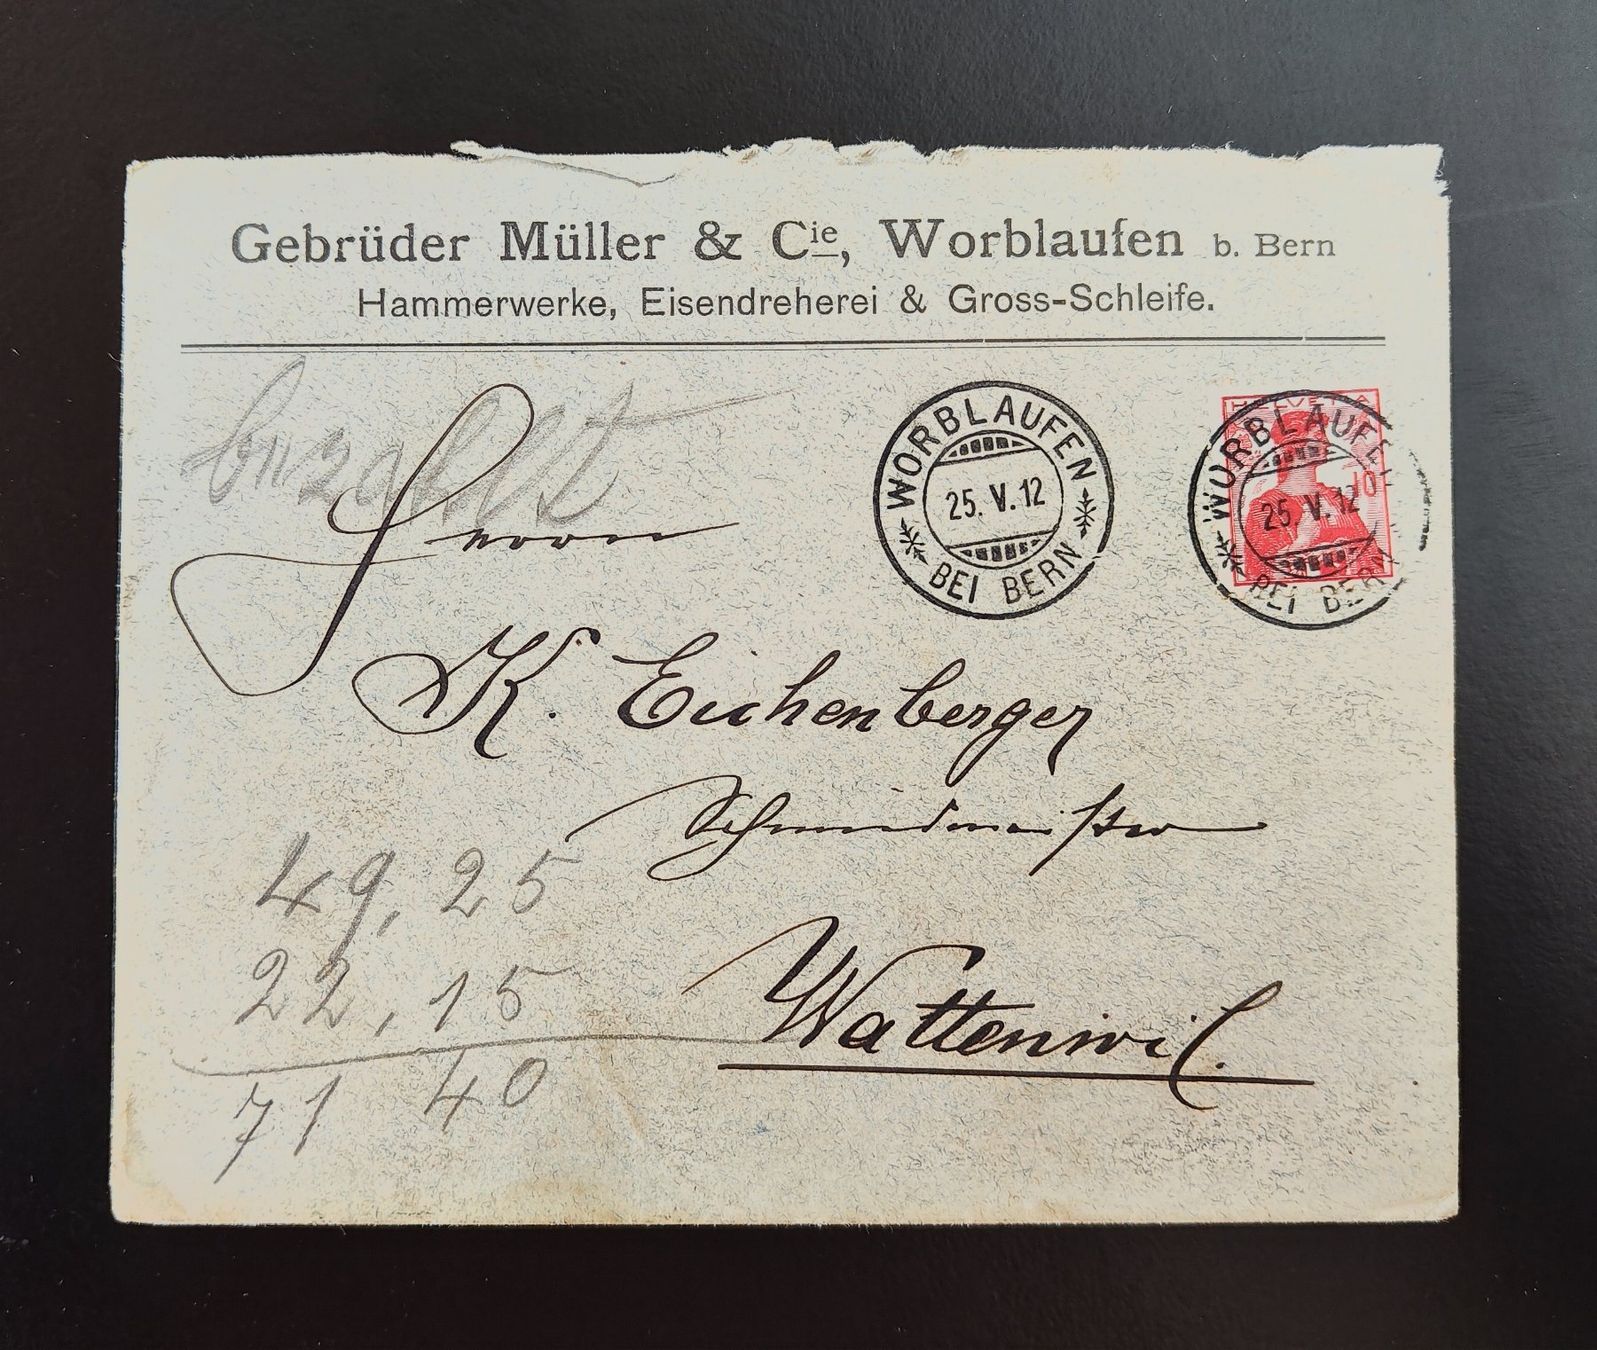 Gebrüder Müller & Cie, Worblaufen b. Bern
Hammerwerke, Eisendreherei & Gross-Schleife.
bezahlt
HELVETIA
10
WORBLAUFEN
25. V. 12
BEI BERN
WORBLAUFEN
25. V. 12
BEI BERN
Herrn
K. Eichenberger
Schmiedmeister
Wattenwil.
49,25
22,15
71 40